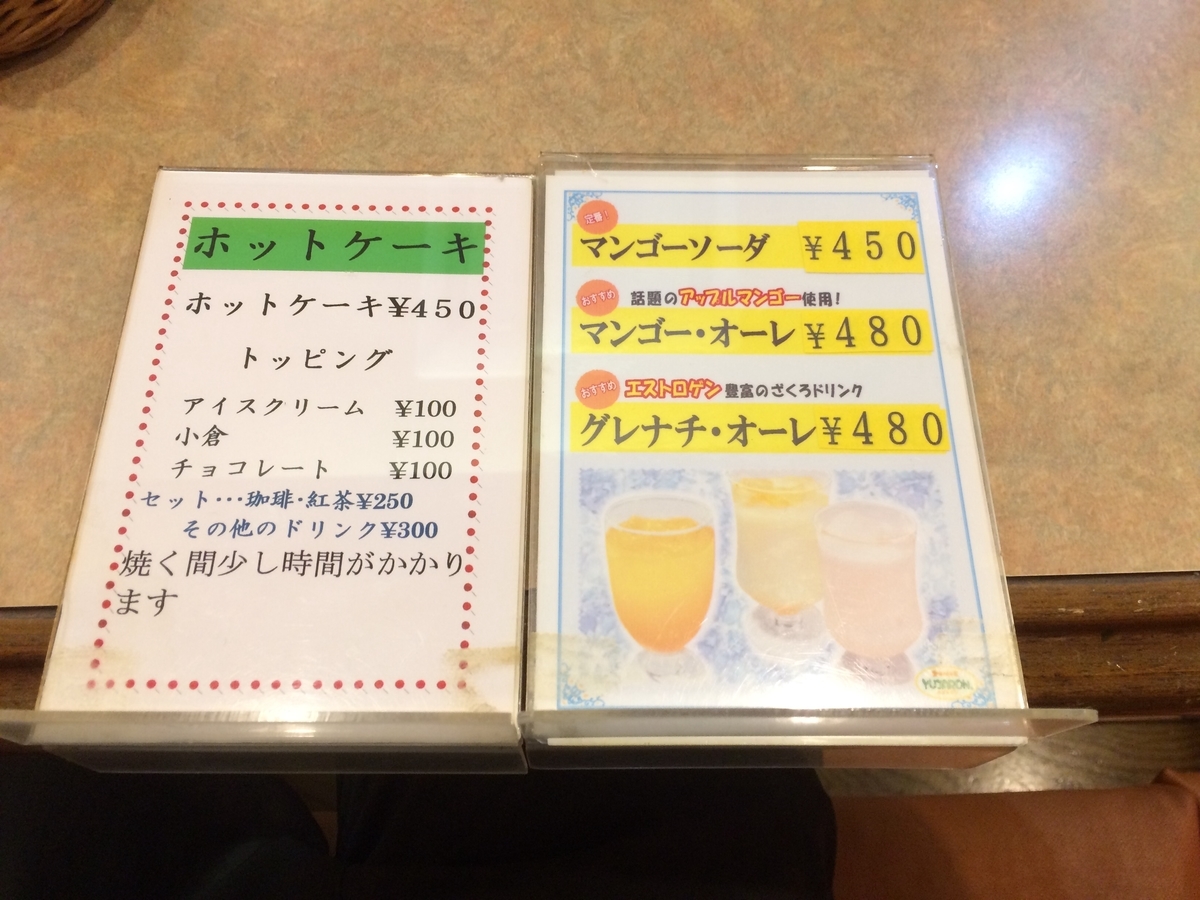 ホットケーキ
ホットケーキ¥450
トッピング
アイスクリーム ¥100
小倉 ¥100
チョコレート ¥100
セット･･･珈琲･紅茶¥250
その他のドリンク¥300
焼く間少し時間がかかり
ます
定番!
マンゴーソーダ ¥450
おすすめ 話題のアップルマンゴー使用!
マンゴー・オーレ ¥480
おすすめ エストロゲン豊富のざくろドリンク
グレナチ・オーレ ¥480